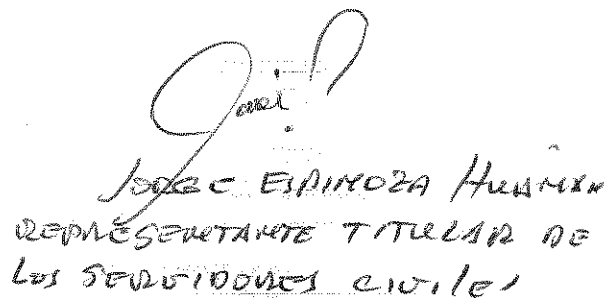 JORGE ESPINOZA HUAMAN
REPRESENTANTE TITULAR DE
LOS SERVIDORES CIVILES